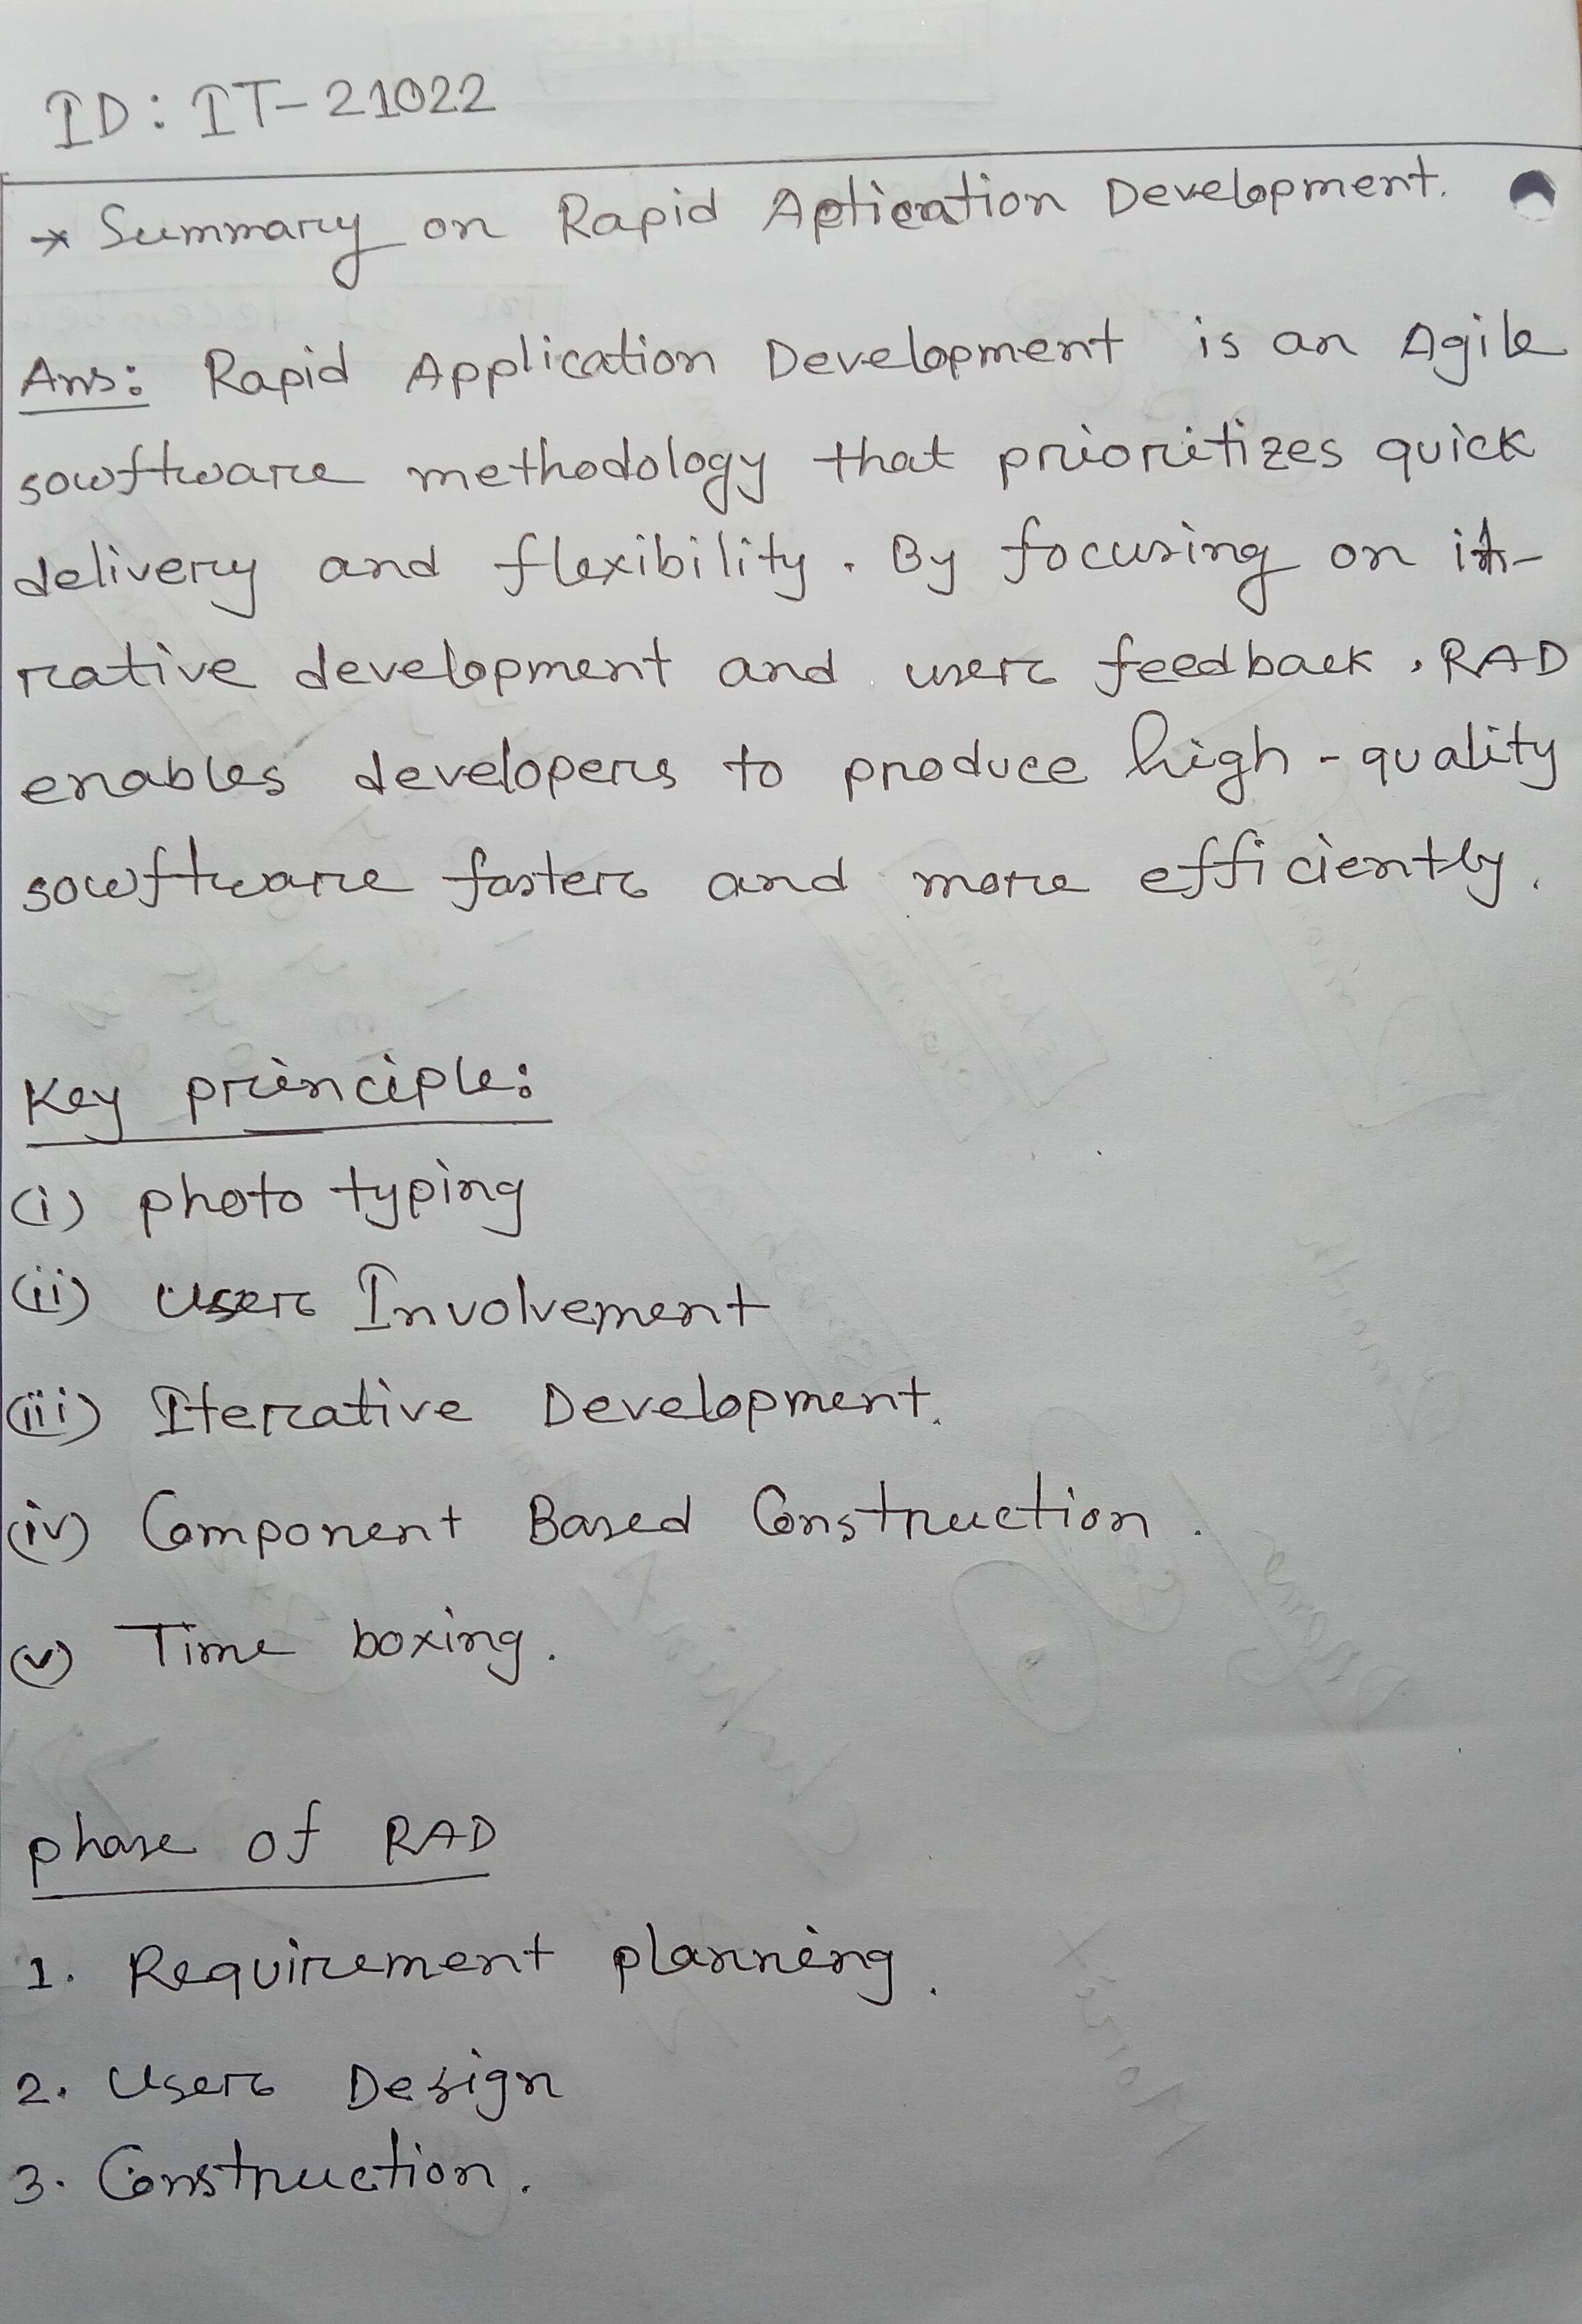 ID: IT-21022
* Summary on Rapid Aptication Development.
Ans: Rapid Application Development is an Agile
sowftware methodology that prioritizes quick
delivery and flexibility. By focusing on
rative development and user feedback, RAD
enables developers to produce high-quality
sowftware faster and more efficiently.
Key principle:
(i) photo typing
(ii) User Involvement
(iii) Iterative Development.
(iv) Component Based Construction.
(v) Time boxing.
phase of RAD
1. Requirement planning.
2. User Design
3. Construction.